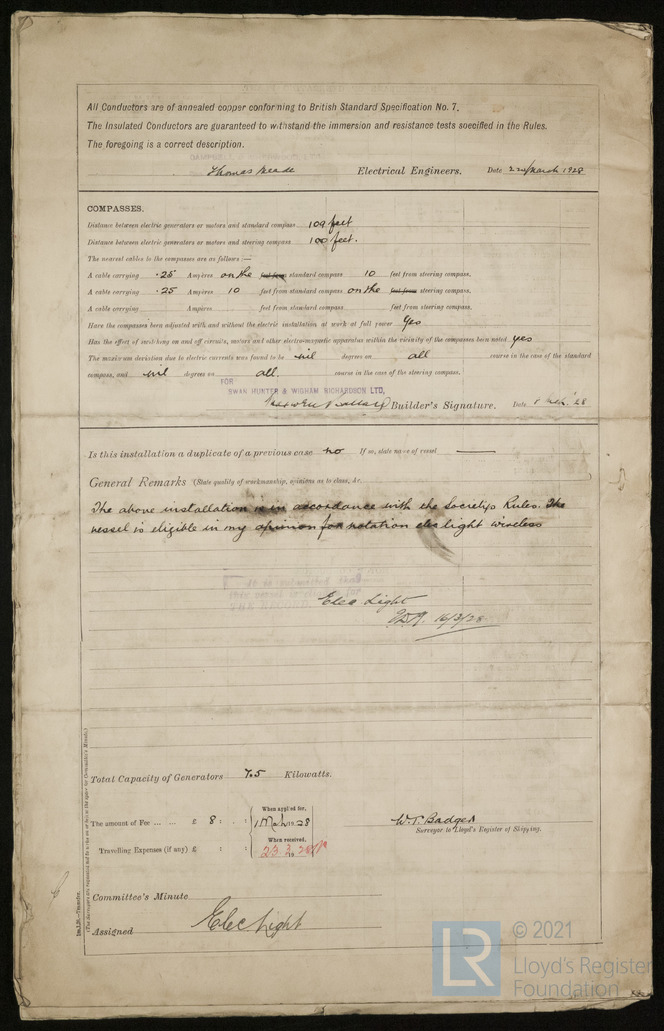 All Conductors are of annealed copper conforming to British Standard Specification No. 7.
The Insulated Conductors are guaranteed to withstand the immersion and resistance tests specified in the Rules.
The foregoing is a correct description.
Thomas Electrical Engineers. Date March 1928
COMPASSES.
Distance between electric generators or motors and standard compass 109 feet
Distance between electric generators or motors and steering compass 100 feet.
The nearest cables to the compasses are as follows:—
A cable carrying .25 Ampères on the feet from standard compass 10 feet from steering compass.
A cable carrying .25 Ampères 10 feet from standard compass on the feet from steering compass.
A cable carrying Ampères feet from standard compass feet from steering compass.
Have the compasses been adjusted with and without the electric installation at work at full power Yes
Has the effect of switching on and off circuits, motors and other electro-magnetic apparatus within the vicinity of the compasses been noted yes
The maximum deviation due to electric currents was found to be nil degrees on all course in the case of the standard
compass, and nil degrees on all. course in the case of the steering compass.
FOR
SWAN HUNTER & WIGHAM RICHARDSON LTD,
Builder's Signature. Date 28
Is this installation a duplicate of a previous case no If so, state name of vessel
General Remarks (State quality of workmanship, opinions as to class, &c.
The above installation is in accordance with the Society's Rules. The
vessel is eligible in my opinion for notation elec light wireless
Elec Light
16/3/28
Total Capacity of Generators 7.5 Kilowatts.
The amount of Fee ... ... £ 8 : :
When applied for,
1 Mch 19 28
When received,
Travelling Expenses (if any) £ : :
23.3.19 28
W.T. Badger
Surveyor to Lloyd's Register of Shipping.
Committee's Minute
Assigned Elec Light
(The Surveyors are requested not to write on or below the space for Committee's Minute.)
LR © 2021
Lloyd's Register
Foundation